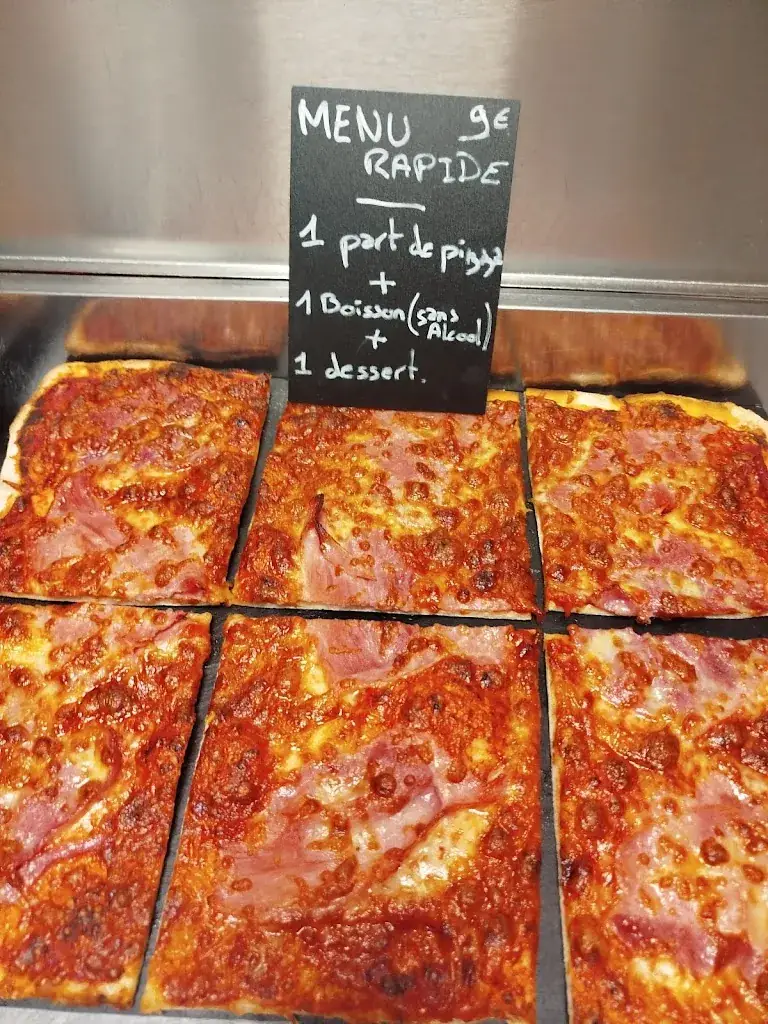 MENU 9€
RAPIDE
1 part de pizza
+
1 Boisson (sans
Alcool)
+
1 dessert.